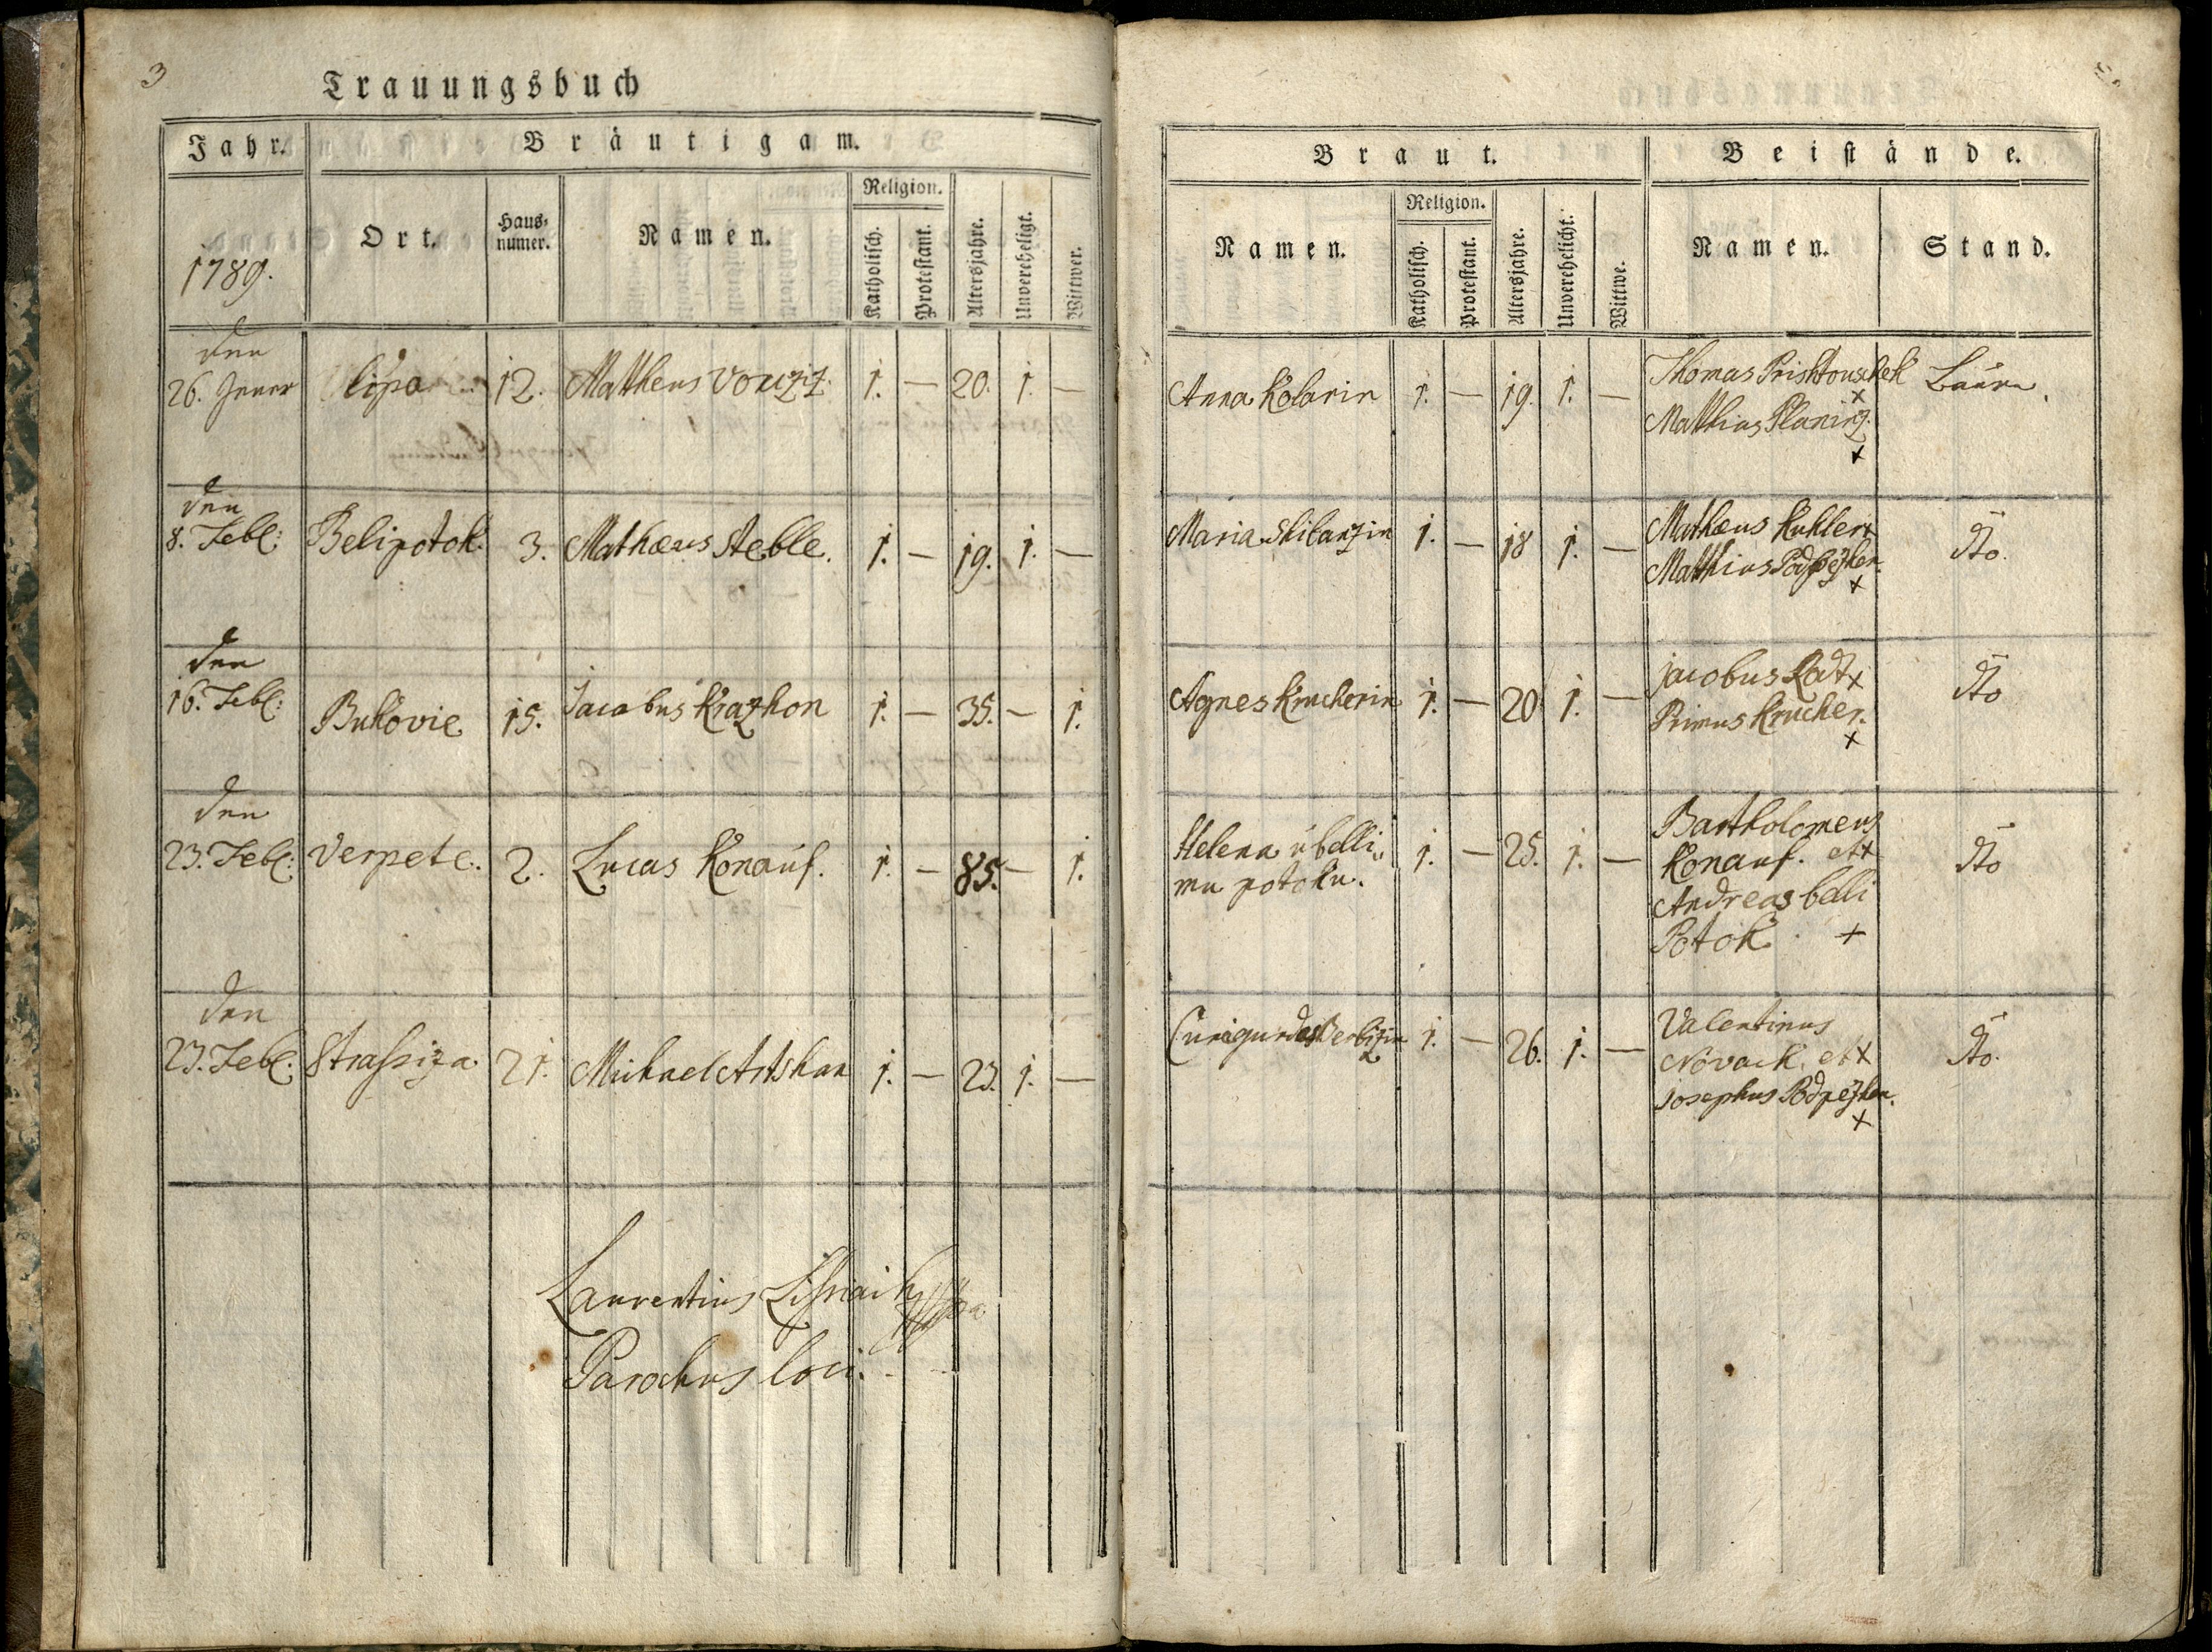 3
Trauungsbuch
Jahr. Bräutigam.
1789. Ort. Haus-
numer. Namen. Religion. Katholisch. Protestant. Altersjahre. Unvereheligt. Wittwer.
den
26. Jener lipa 12. Matheus Vouziz. 1. — 20. 1. —
den
8. Febl: Belipotok 3. Mathæus Steble. 1. — 19. 1. —
den
16. Febl: Bukovie 15. Jacobus Krazhon 1. — 35. — 1.
den
23. Febl: Verpete. 2. Lucas Konauf. 1. — 85. — 1.
den
23. Febl: Strassiza 21. Michael Artshan 1. — 23. 1. —
Laurentius
Parochus loci.
Braut. Beistände.
Namen. Religion. Katholisch. Protestant. Altersjahre. Unverehelicht. Wittwe. Namen. Stand.
Anna Kolarin 1. — 19. 1. — Thomas Prishtouschek Bauren
x
Mathias Planinz.
x
Maria Skibanzin 1. — 18 1. — Mathæus Kuhler x
Mathias Podpezhen. dto.
x
Agnes Krucherin 1. — 20 1. — jacobus Radt x dto
Primus Krucher.
x
Helena u belli, 1. — 25. 1. — Bartholomeus
mu potoku. Konauf. et x dto
Andreas belli
Potok. x
Cunigundes Verbizin 1. — 26. 1. — Valentinus
Novack. et x dto.
Josephus Podpezhen.
x